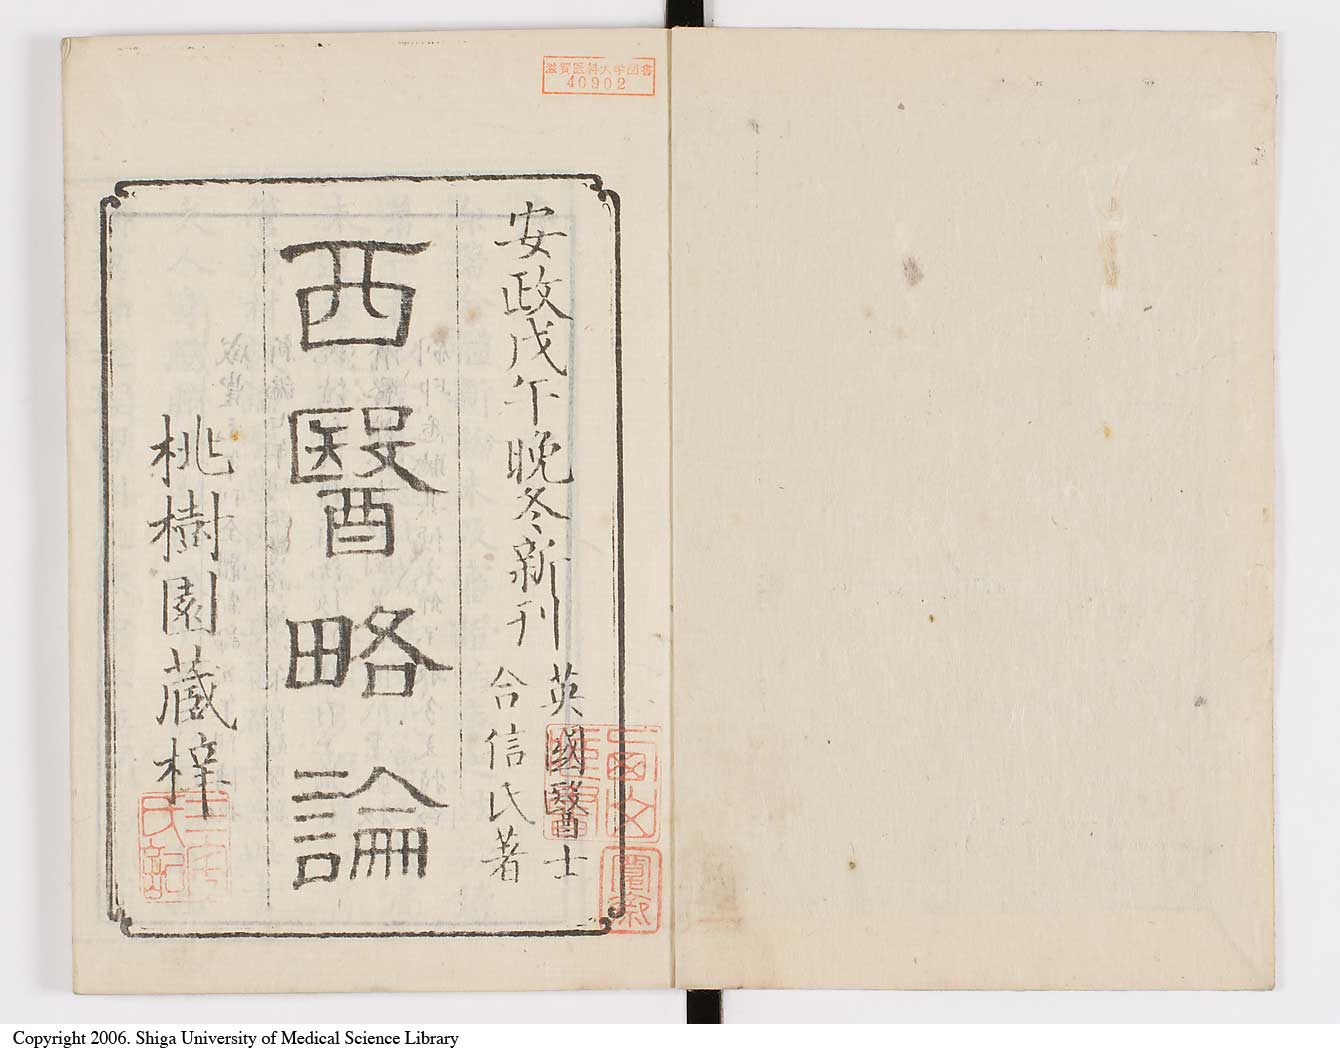 滋賀医科大学図書
40902
安政戊午晩冬新刊
英國醫士
合信氏著
西醫略論
桃樹園蔵梓
Copyright 2006. Shiga University of Medical Science Library